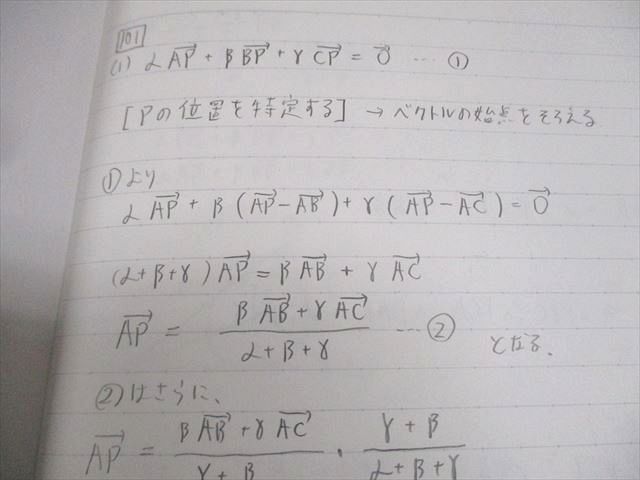 101
(1) α AP→ + β BP→ + γ CP→ = 0→ … ①
[Pの位置を特定する] → ベクトルの始点をそろえる
①より
α AP→ + β (AP→ − AB→) + γ (AP→ − AC→) = 0→
(α+β+γ) AP→ = β AB→ + γ AC→
AP→ = (β AB→ + γ AC→) / (α + β + γ) … ② となる、
②はさらに、
AP→ = (β AB→ + γ AC→) / (γ + β) · (γ + β) / (α + β + γ)